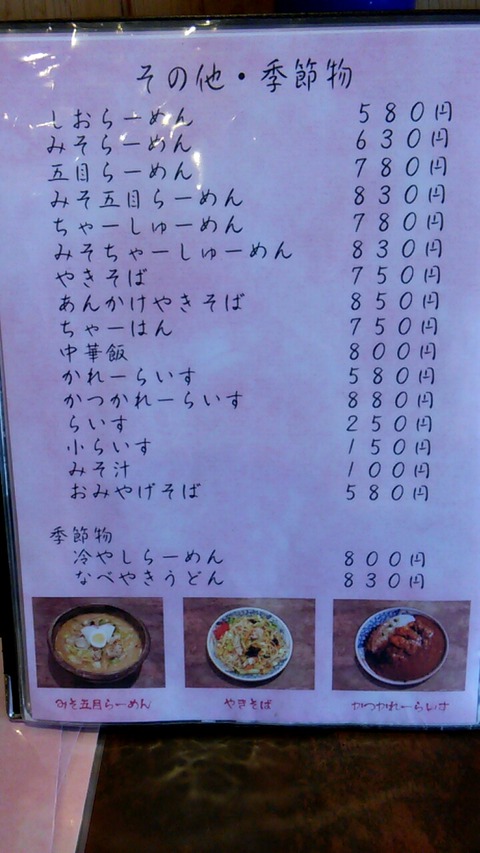 その他・季節物
しおらーめん 580円
みそらーめん 630円
五目らーめん 780円
みそ五目らーめん 830円
ちゃーしゅーめん 780円
みそちゃーしゅーめん 830円
やきそば 750円
あんかけやきそば 850円
ちゃーはん 750円
中華飯 800円
かれーらいす 580円
かつかれーらいす 880円
らいす 250円
小らいす 150円
みそ汁 100円
おみやげそば 580円
季節物
冷やしらーめん 800円
なべやきうどん 830円
みそ五目らーめん
やきそば
かつかれーらいす